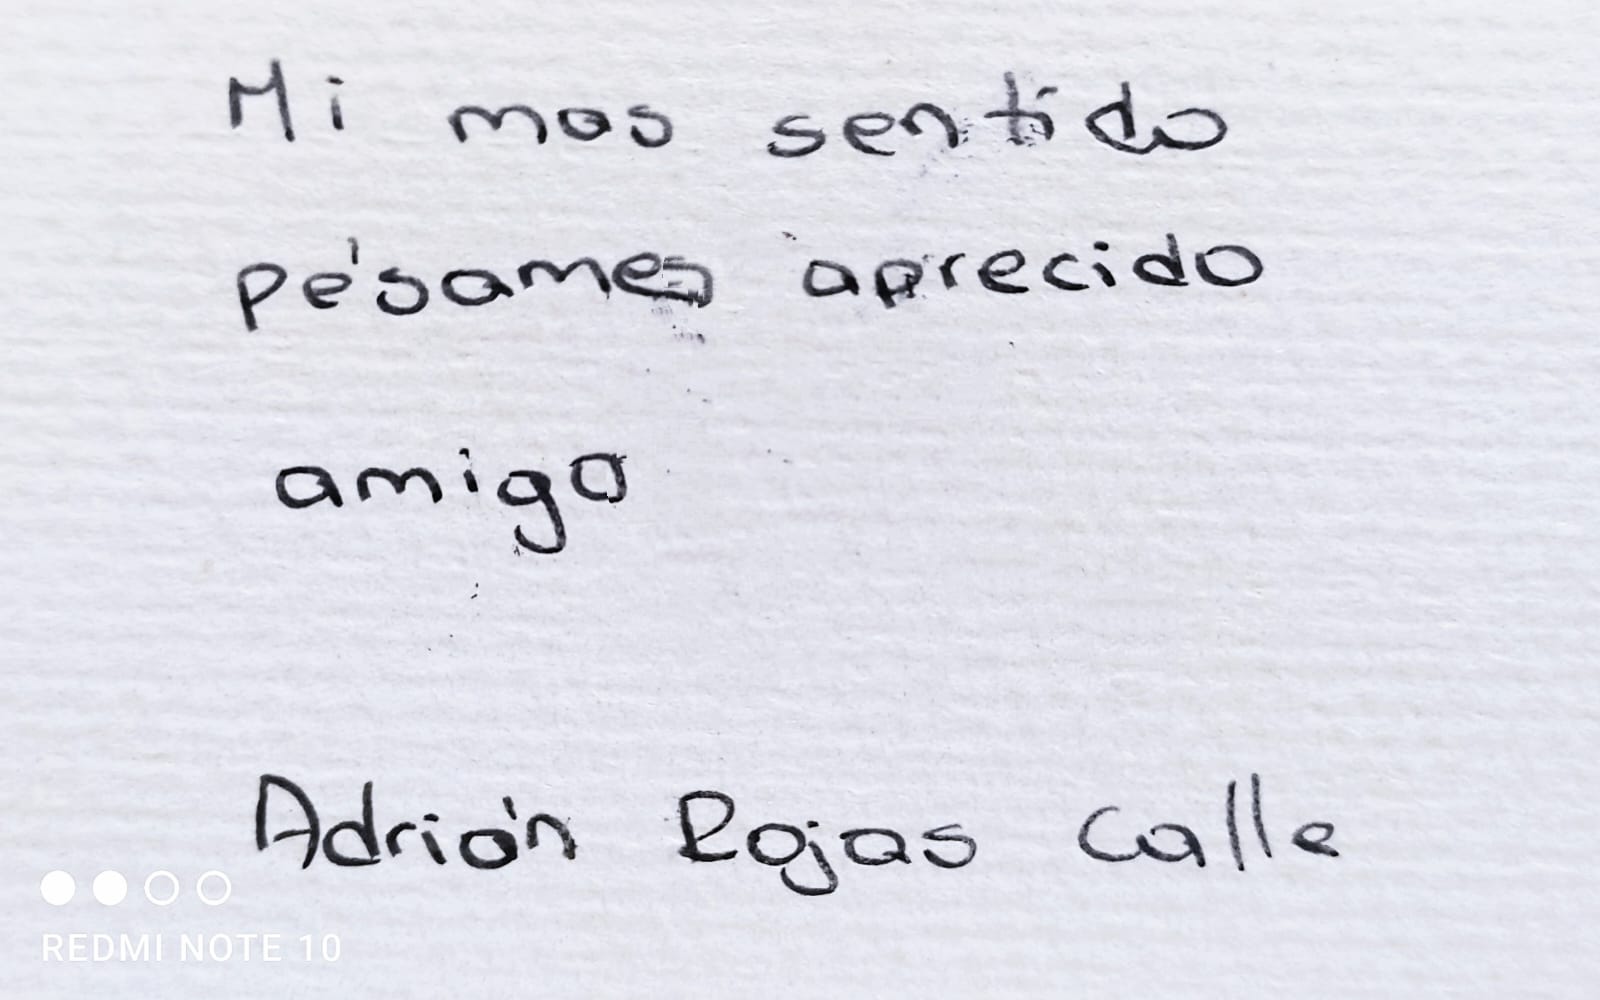 Mi mas sentido
pésames aprecido
amigo
Adrián Rojas Calle
REDMI NOTE 10